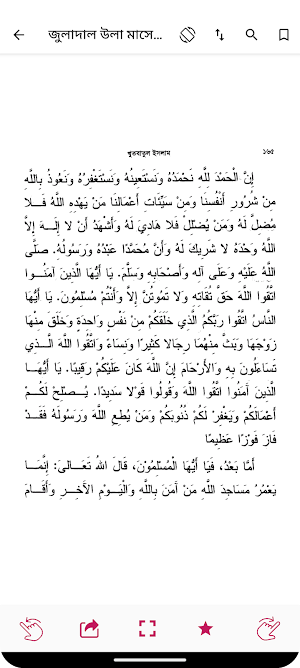 জুলাদাল উলা মাসে...
খুতবাতুল ইসলাম ১৬৫
إِنَّ الْحَمْدَ لِلَّهِ نَحْمَدُهُ وَنَسْتَعِينُهُ وَنَسْتَغْفِرُهُ وَنَعُوذُ بِاللَّهِ
مِنْ شُرُورِ أَنْفُسِنَا وَمِنْ سَيِّئَاتِ أَعْمَالِنَا مَنْ يَهْدِهِ اللَّهُ فَـلاَ
مُضِلَّ لَهُ وَمَنْ يُضْلِلْ فَلاَ هَادِيَ لَهُ وَأَشْهَدُ أَنْ لاَ إِلَـهَ إِلاَّ
اللَّهُ وَحْدَهُ لاَ شَرِيكَ لَهُ وَأَنَّ مُحَمَّدًا عَبْدُهُ وَرَسُولُهُ. صَلَّى
اللَّهُ عَلَيْهِ وَعَلَى آلِهِ وَأَصْحَابِهِ وَسَلَّمَ. يَا أَيُّهَا الَّذِينَ آمَنُـوا
اتَّقُوا اللَّهَ حَقَّ تُقَاتِهِ وَلاَ تَمُوتُنَّ إِلاَّ وَأَنْتُمْ مُسْلِمُونَ. يَا أَيُّهَا
النَّاسُ اتَّقُوا رَبَّكُمُ الَّذِي خَلَقَكُمْ مِنْ نَفْسٍ وَاحِدَةٍ وَخَلَقَ مِنْهَا
زَوْجَهَا وَبَثَّ مِنْهُمَا رِجَالا كَثِيرًا وَنِسَاءً وَاتَّقُوا اللَّهَ الَّـذِي
تَسَاءَلُونَ بِهِ وَالأَرْحَامَ إِنَّ اللَّهَ كَانَ عَلَيْكُمْ رَقِيبًا. يَا أَيُّهَـا
الَّذِينَ آمَنُوا اتَّقُوا اللَّهَ وَقُولُوا قَوْلا سَدِيدًا. يُـصْلِحْ لَكُـمْ
أَعْمَالَكُمْ وَيَغْفِرْ لَكُمْ ذُنُوبَكُمْ وَمَنْ يُطِعِ اللَّهَ وَرَسُولَهُ فَقَـدْ
فَازَ فَوْزًا عَظِيمًا
أَمَّا بَعْدُ، فَيَا أَيُّهَا الْمُسْلِمُوْنَ، قَالَ اللهُ تَعَـالَىَ: إِنَّمَـا
يَعْمُرُ مَسَاجِدَ اللَّهِ مَنْ آمَنَ بِاللَّهِ وَالْيَـوْمِ الآخِـرِ وَأَقَـامَ